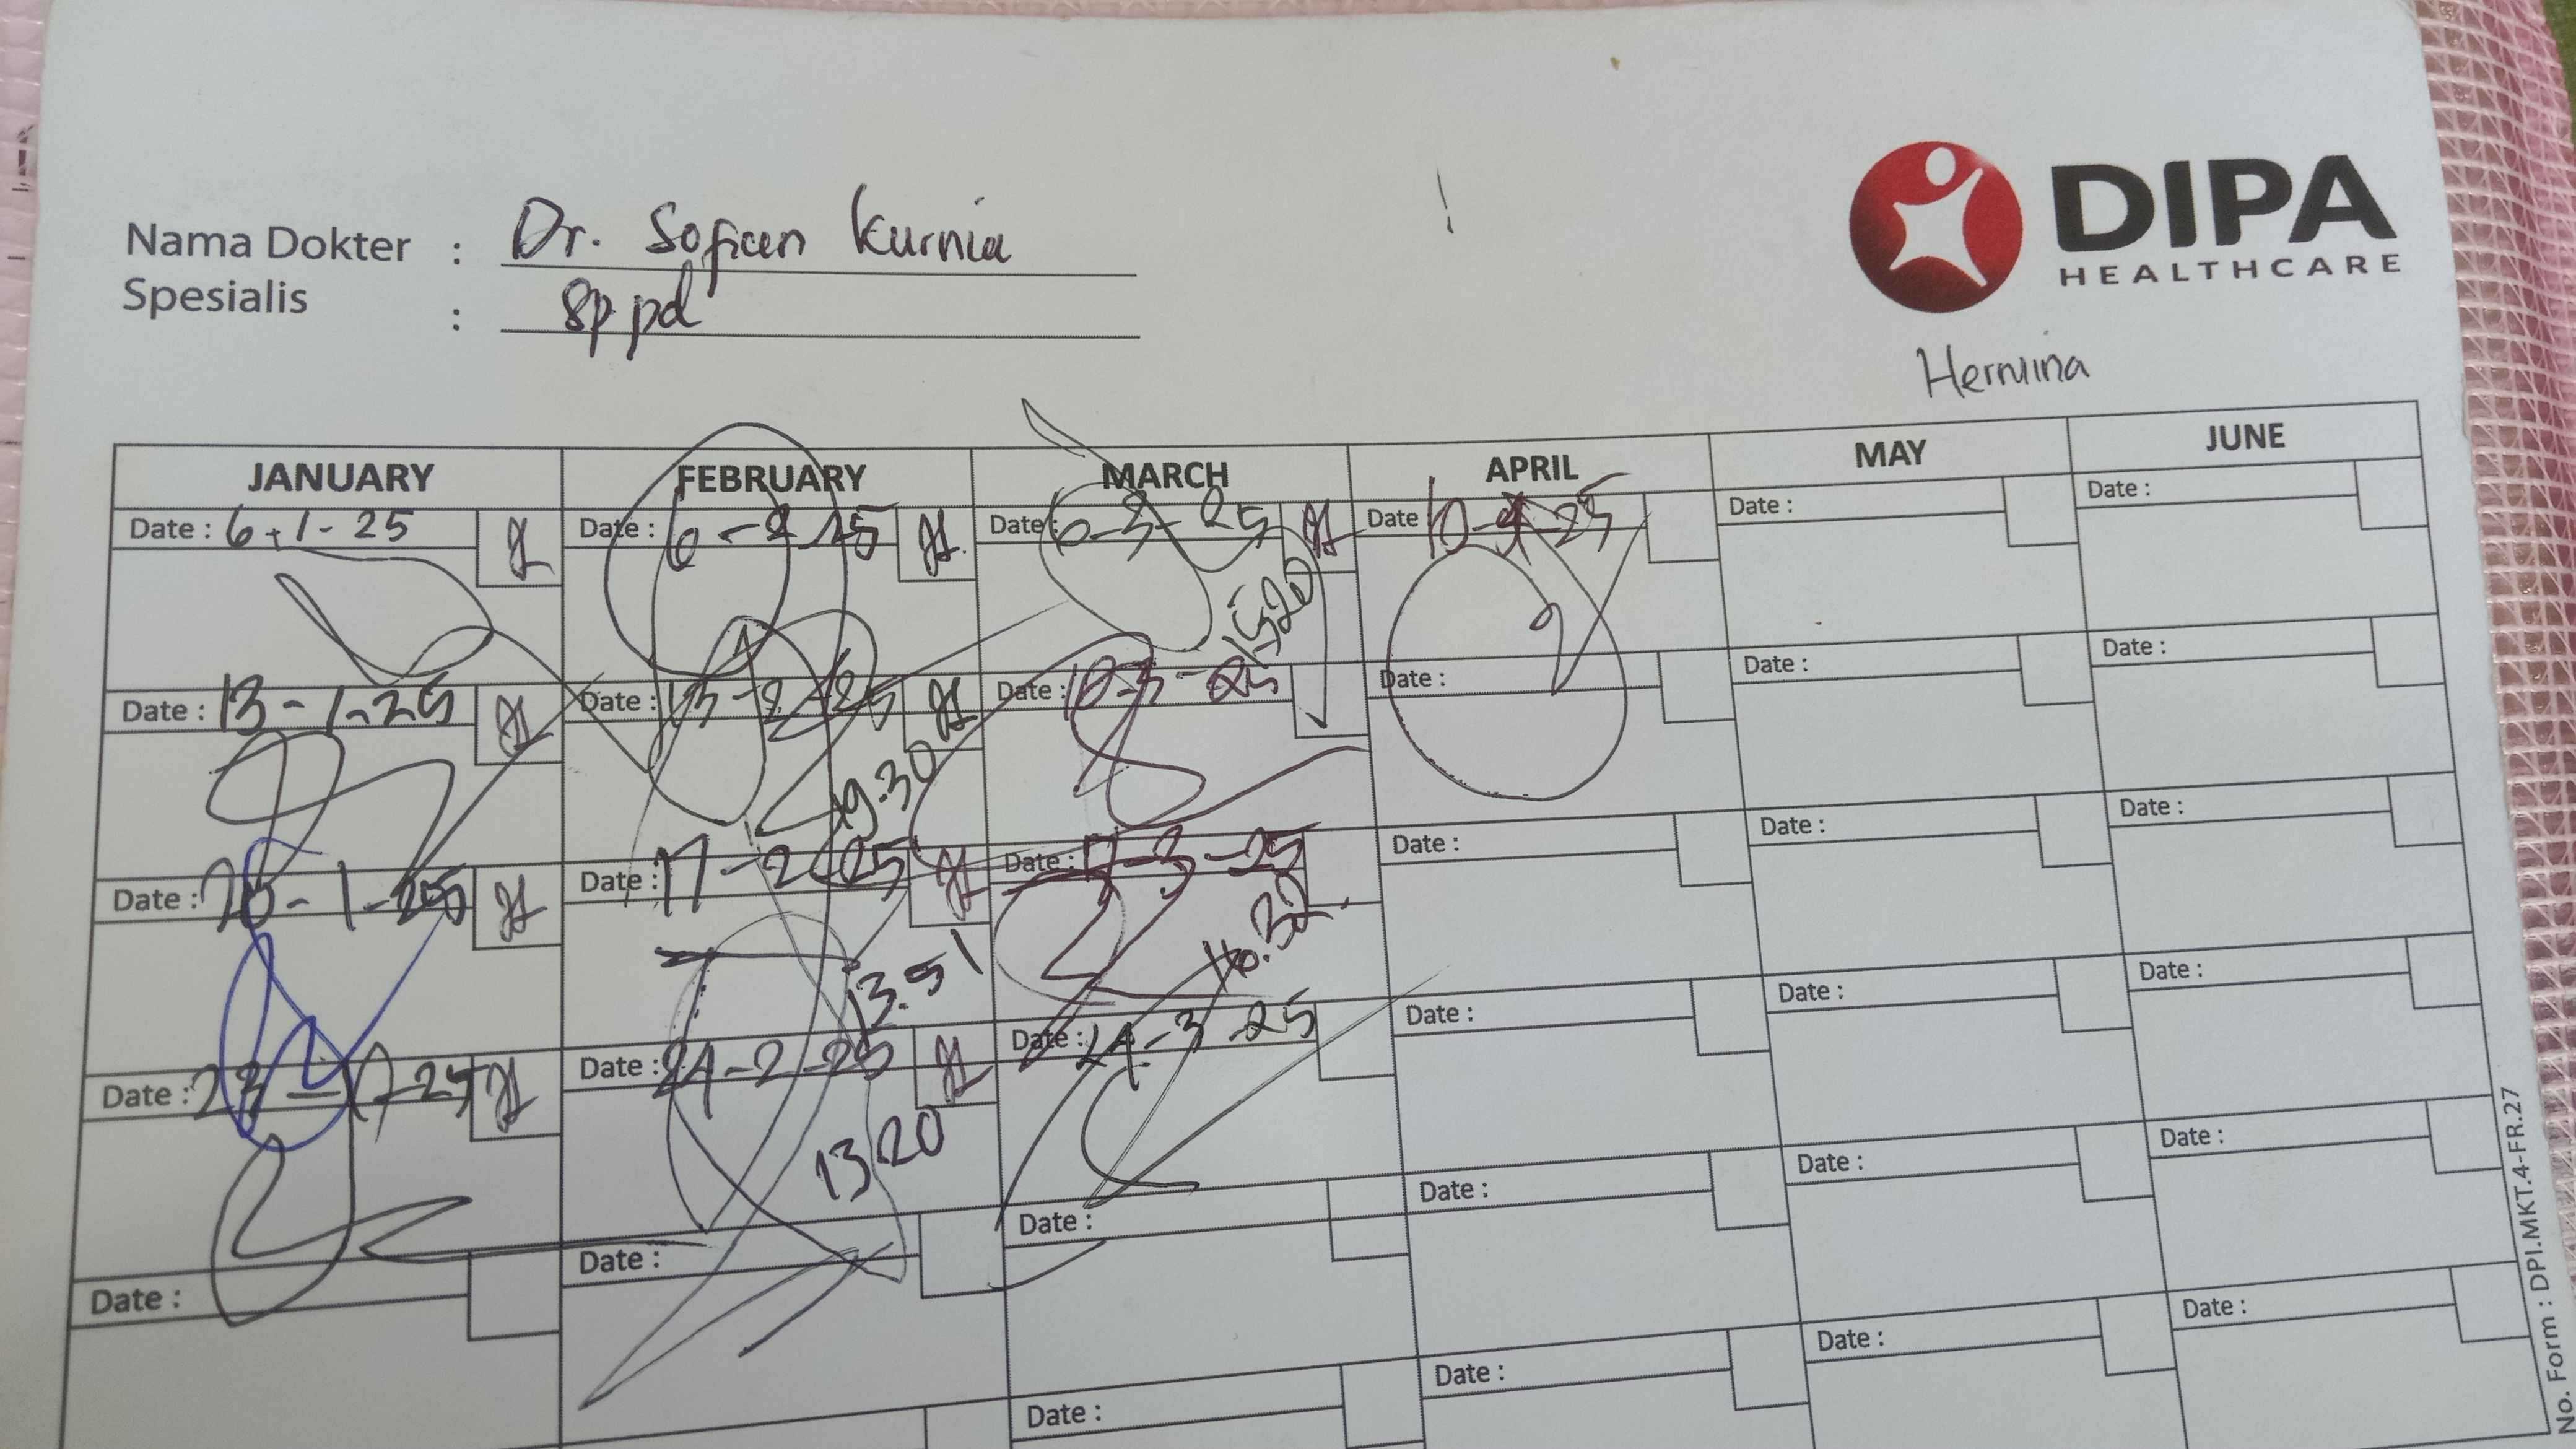 DIPA
HEALTHCARE
Nama Dokter : Dr. Sofian Kurnia
Spesialis : Sp pd
Hermina
JANUARY FEBRUARY MARCH APRIL MAY JUNE
Date : 6-1-25 Date : 6-2-25 Date : 6-3-25 Date : 10-4-25 Date : Date :
1520
Date : 13-1-25 Date : 13-2-25 Date : 10-3-25 Date : Date : Date :
19.30
Date : 20-1-25 Date : 17-2-25 Date : 17-3-25 Date : Date : Date :
13.51
Date : 23-1-25 Date : 24-2-25 Date : 24-3-25 Date : Date : Date :
1320
Date : Date : Date : Date : Date : Date :
Date : Date : Date : Date :
No. Form : DPI.MKT.4-FR.27